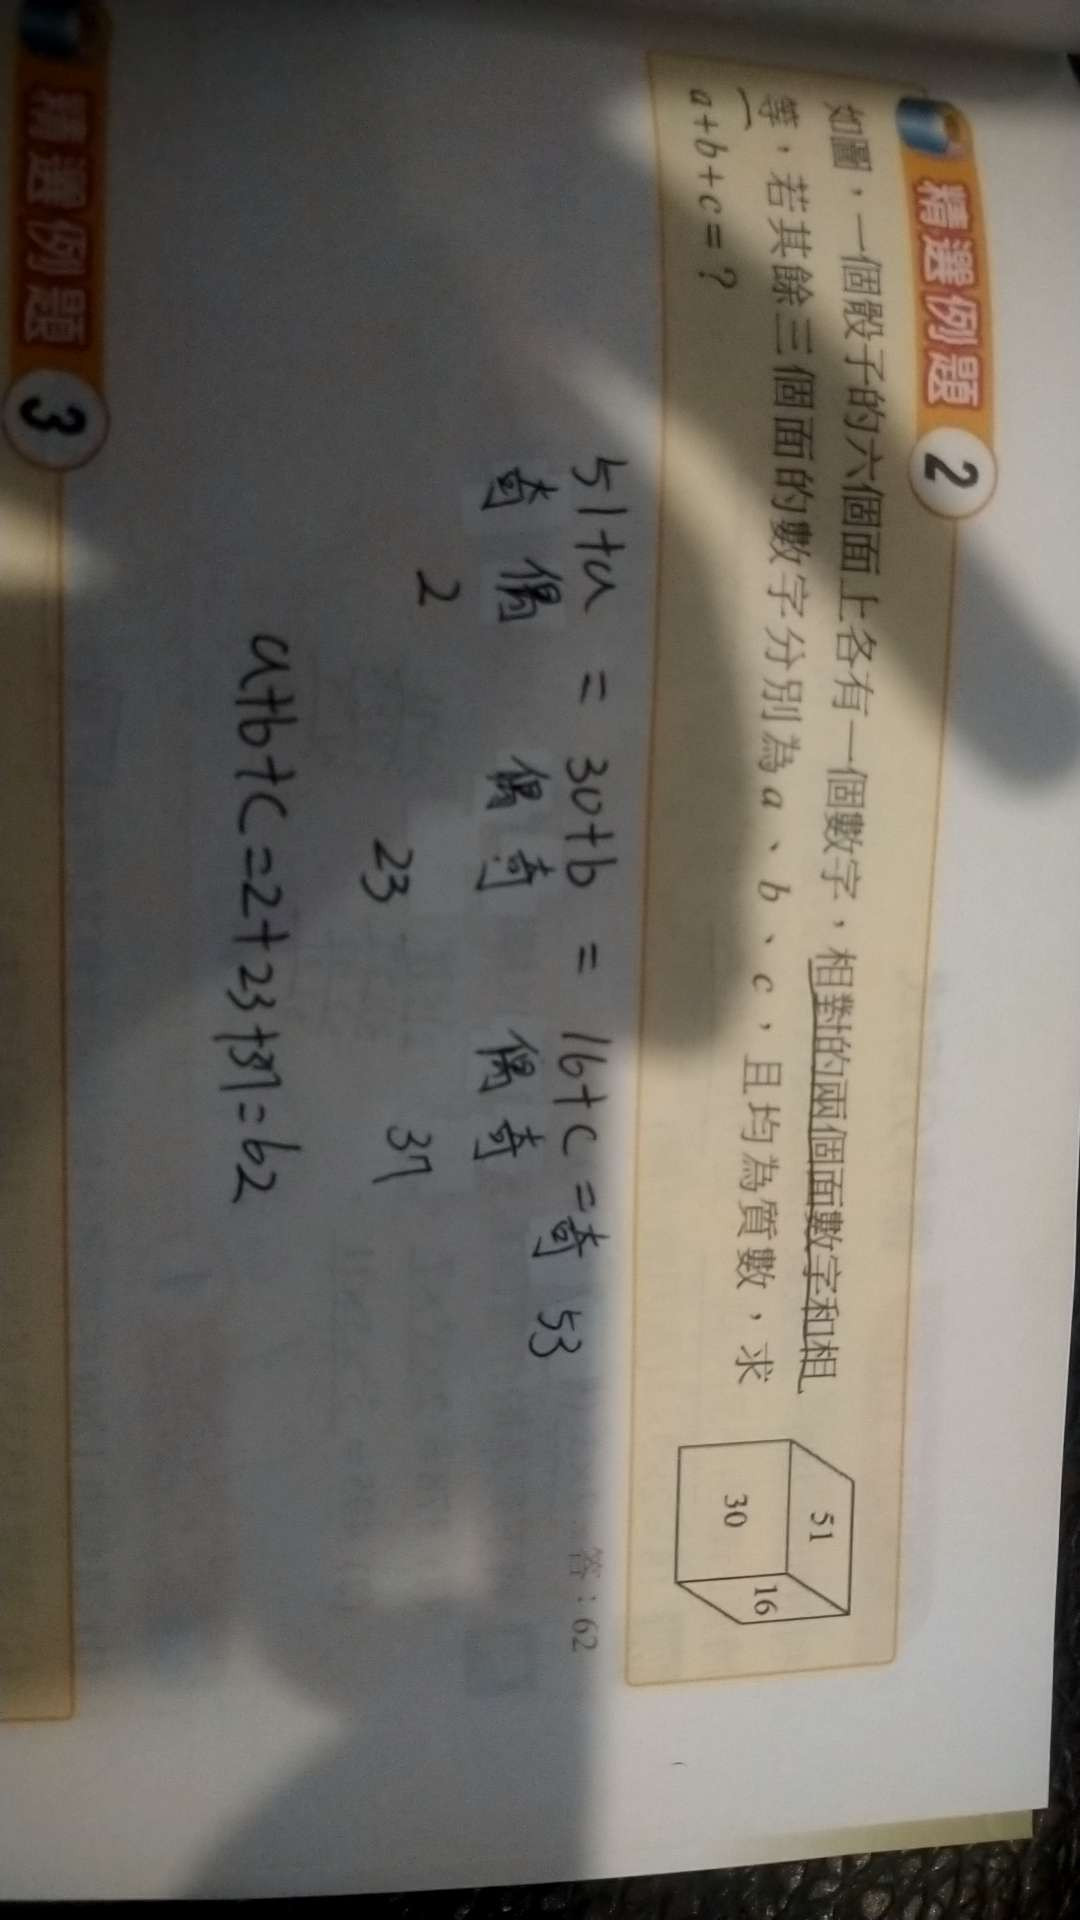 精選例題 2
如圖，一個骰子的六個面上各有一個數字，相對的兩個面數字和相
等，若其餘三個面的數字分別為a、b、c，且均為質數，求
a+b+c=？
51
30
16
51+a = 30+b = 16+c = 奇 53
奇 偶 偶 奇 偶 奇
2 23 37
a+b+c=2+23+37=62
答：62
精選例題 3